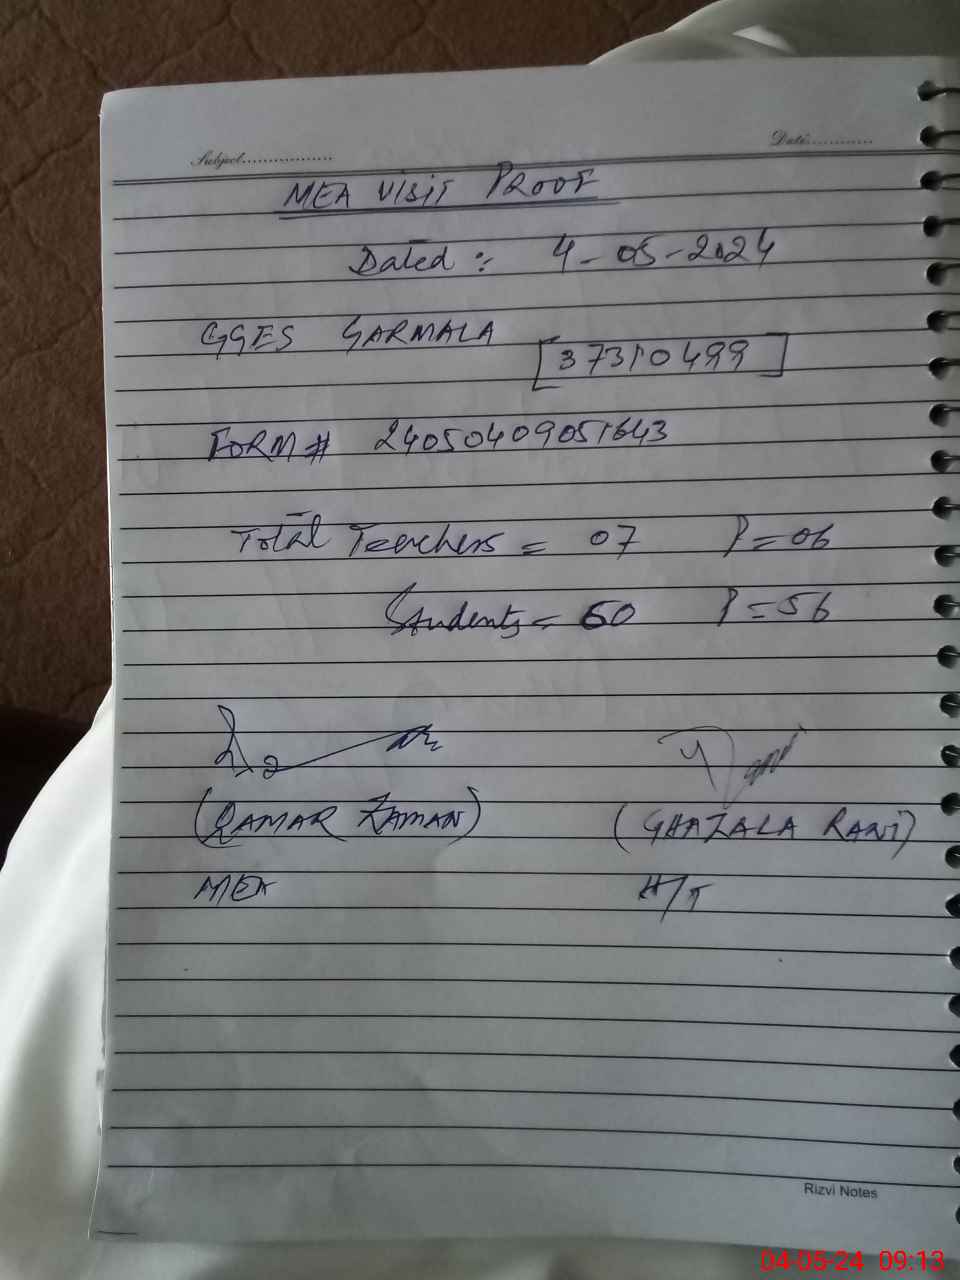 Subject................. Date:............
MEA VISIT PROOF
Dated :- 4-05-2024
GGES GARMALA
[37310499]
FORM # 24050409051643
Total Teachers = 07 P=06
Students = 60 P=56
(QAMAR ZAMAN) (GHAZALA RANI)
MEA H/T
Rizvi Notes
04-05-24 09:13